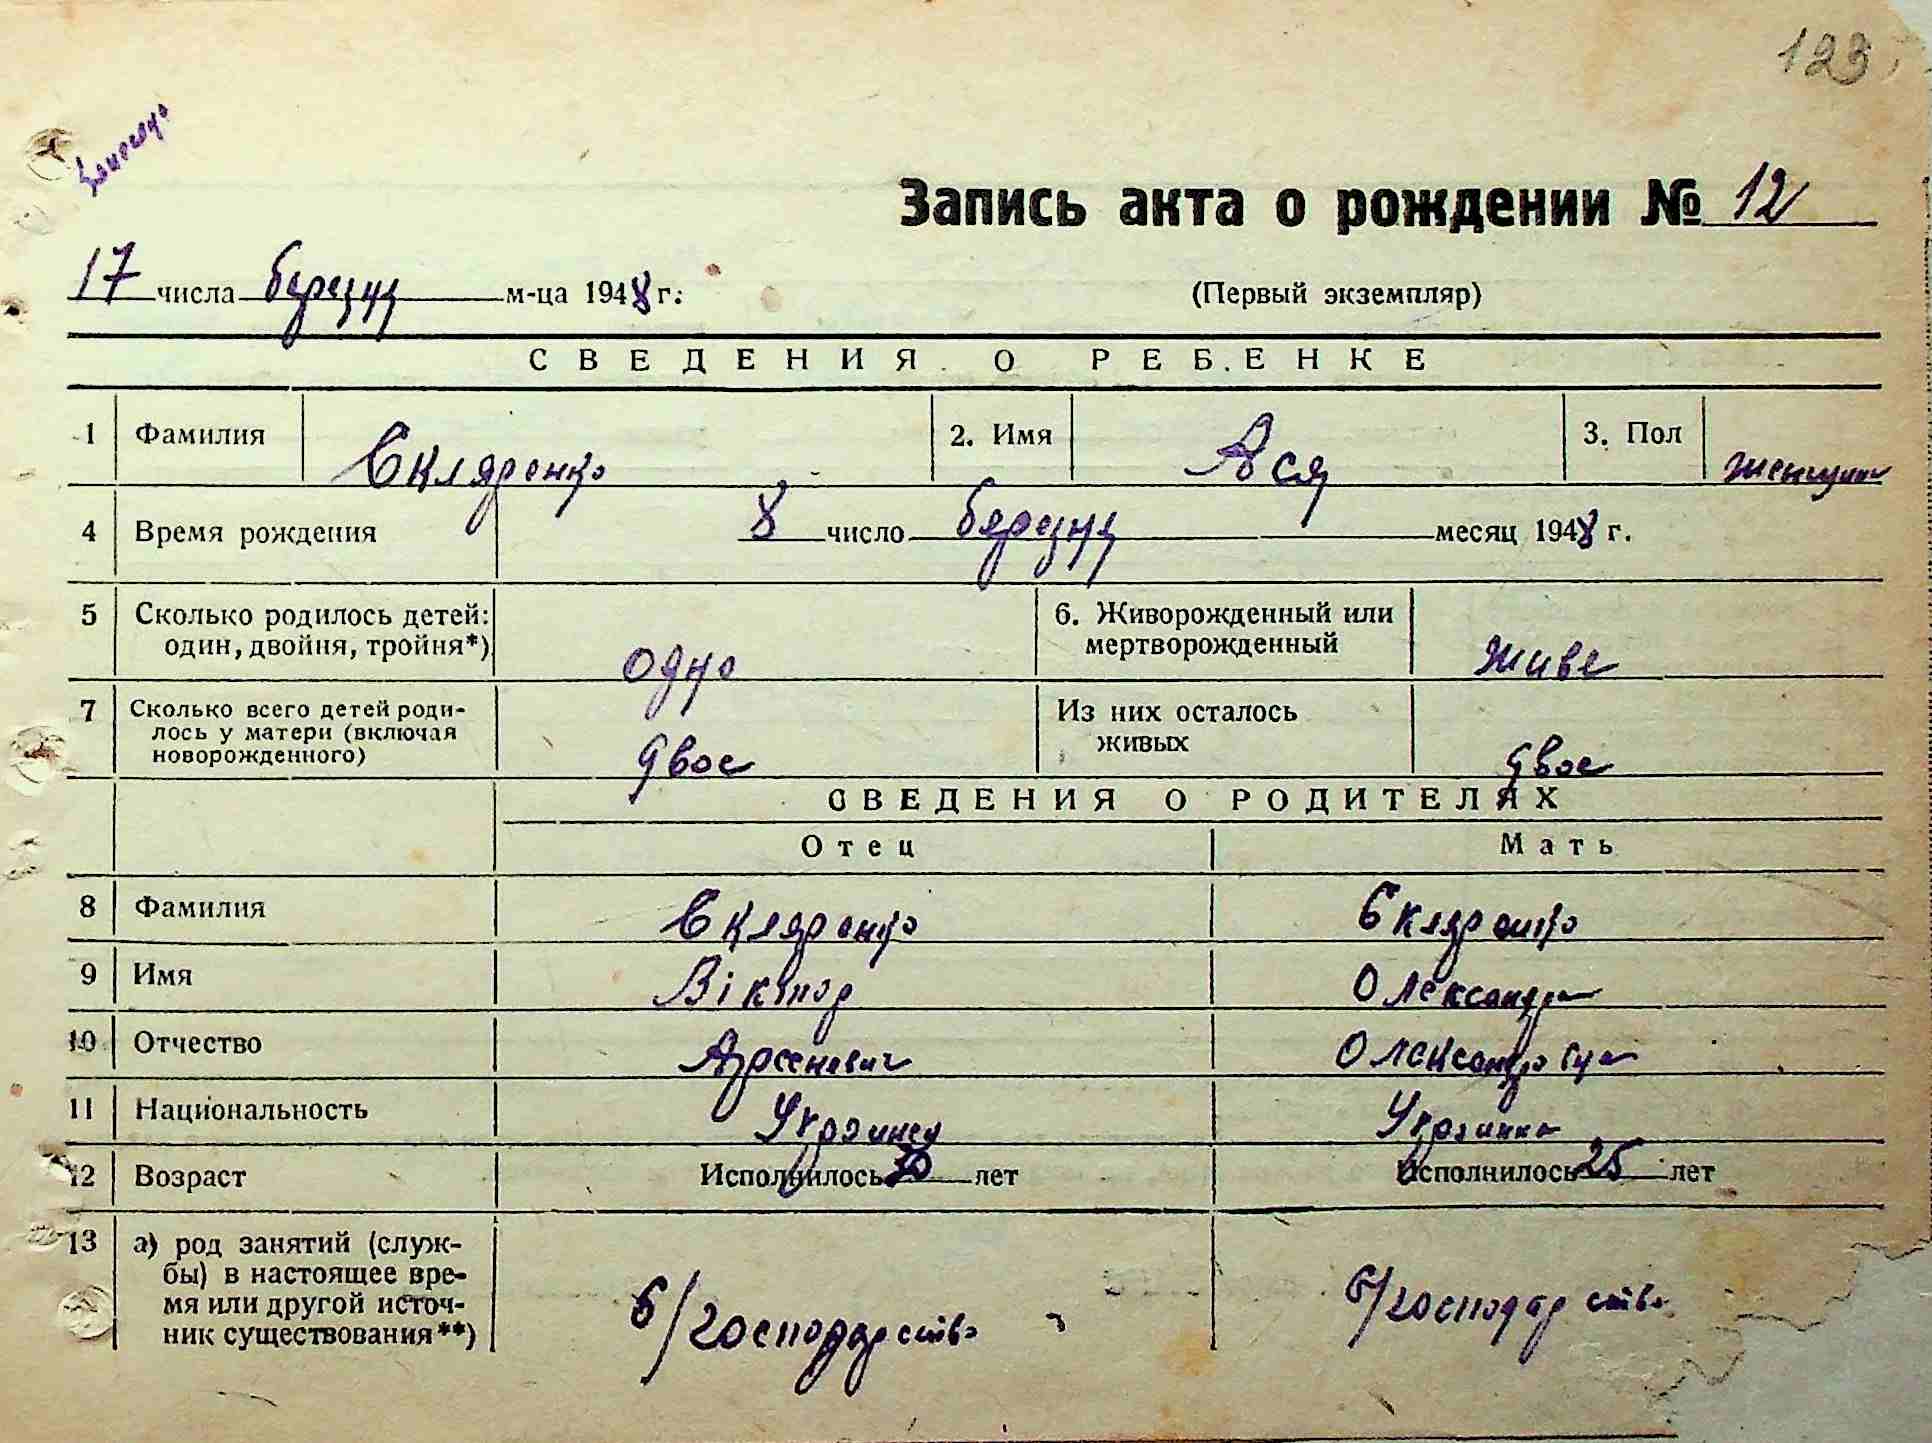 123
Запись акта о рождении № 12
17 числа березня м-ца 1948 г.
(Первый экземпляр)
СВЕДЕНИЯ О РЕБЕНКЕ
1 Фамилия Скляренко 2. Имя Ася 3. Пол
4 Время рождения 8 число березня месяц 1948 г.
5 Сколько родилось детей: один, двойня, тройня*) одно 6. Живорожденный или мертворожденный живе
7 Сколько всего детей родилось у матери (включая новорожденного) двое Из них осталось живых двое
СВЕДЕНИЯ О РОДИТЕЛЯХ
Отец Мать
8 Фамилия Скляренко Скляренко
9 Имя Віктор Олександра
10 Отчество Арсеневич Олександровна
11 Национальность Украинец Украинка
12 Возраст Исполнилось 30 лет Исполнилось 25 лет
13 а) род занятий (службы) в настоящее время или другой источник существования**) б/господарство б/господарство